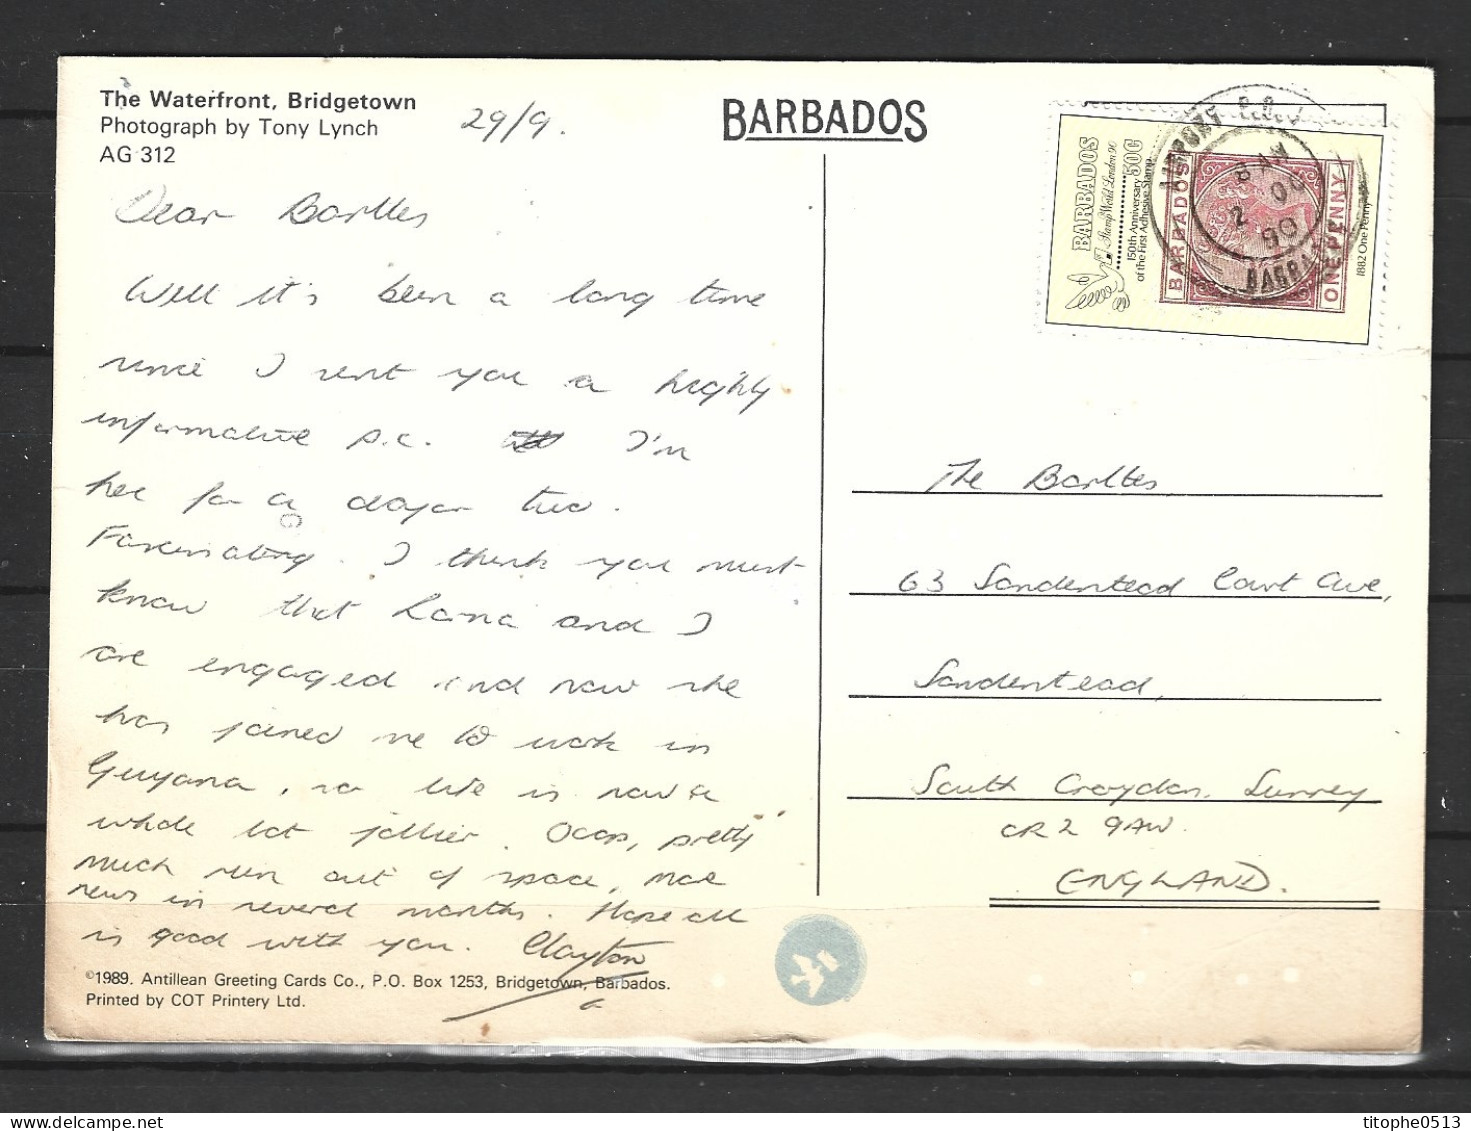 The Waterfront, Bridgetown
Photograph by Tony Lynch
AG 312
29/9.
BARBADOS
Dear Barltes
Well it's been a long time
since I sent you a highly
informative p.c. I'm
her for a day or two.
Fascinating. I think you must
know that Lorna and I
are engaged and now she
has joined me to work in
Guyana, so life is now a
whole lot jollier. Ooops, pretty
much run out of space, more
news in several months. Hope all
is good with you. Clayton
©1989. Antillean Greeting Cards Co., P.O. Box 1253, Bridgetown, Barbados.
Printed by COT Printery Ltd.
BARBADOS 50c
Stamp World London 90
150th Anniversary
of the First Adhesive Stamp
BARBADOS
ONE PENNY
1882 One Penny
AIRPORT P.O.
8 AM
2 OC
90
BARBA
The Barltes
63 Sanderstead Court Ave,
Sanderstead,
South Croydon. Surrey
CR2 9AW.
ENGLAND.
titophe0513